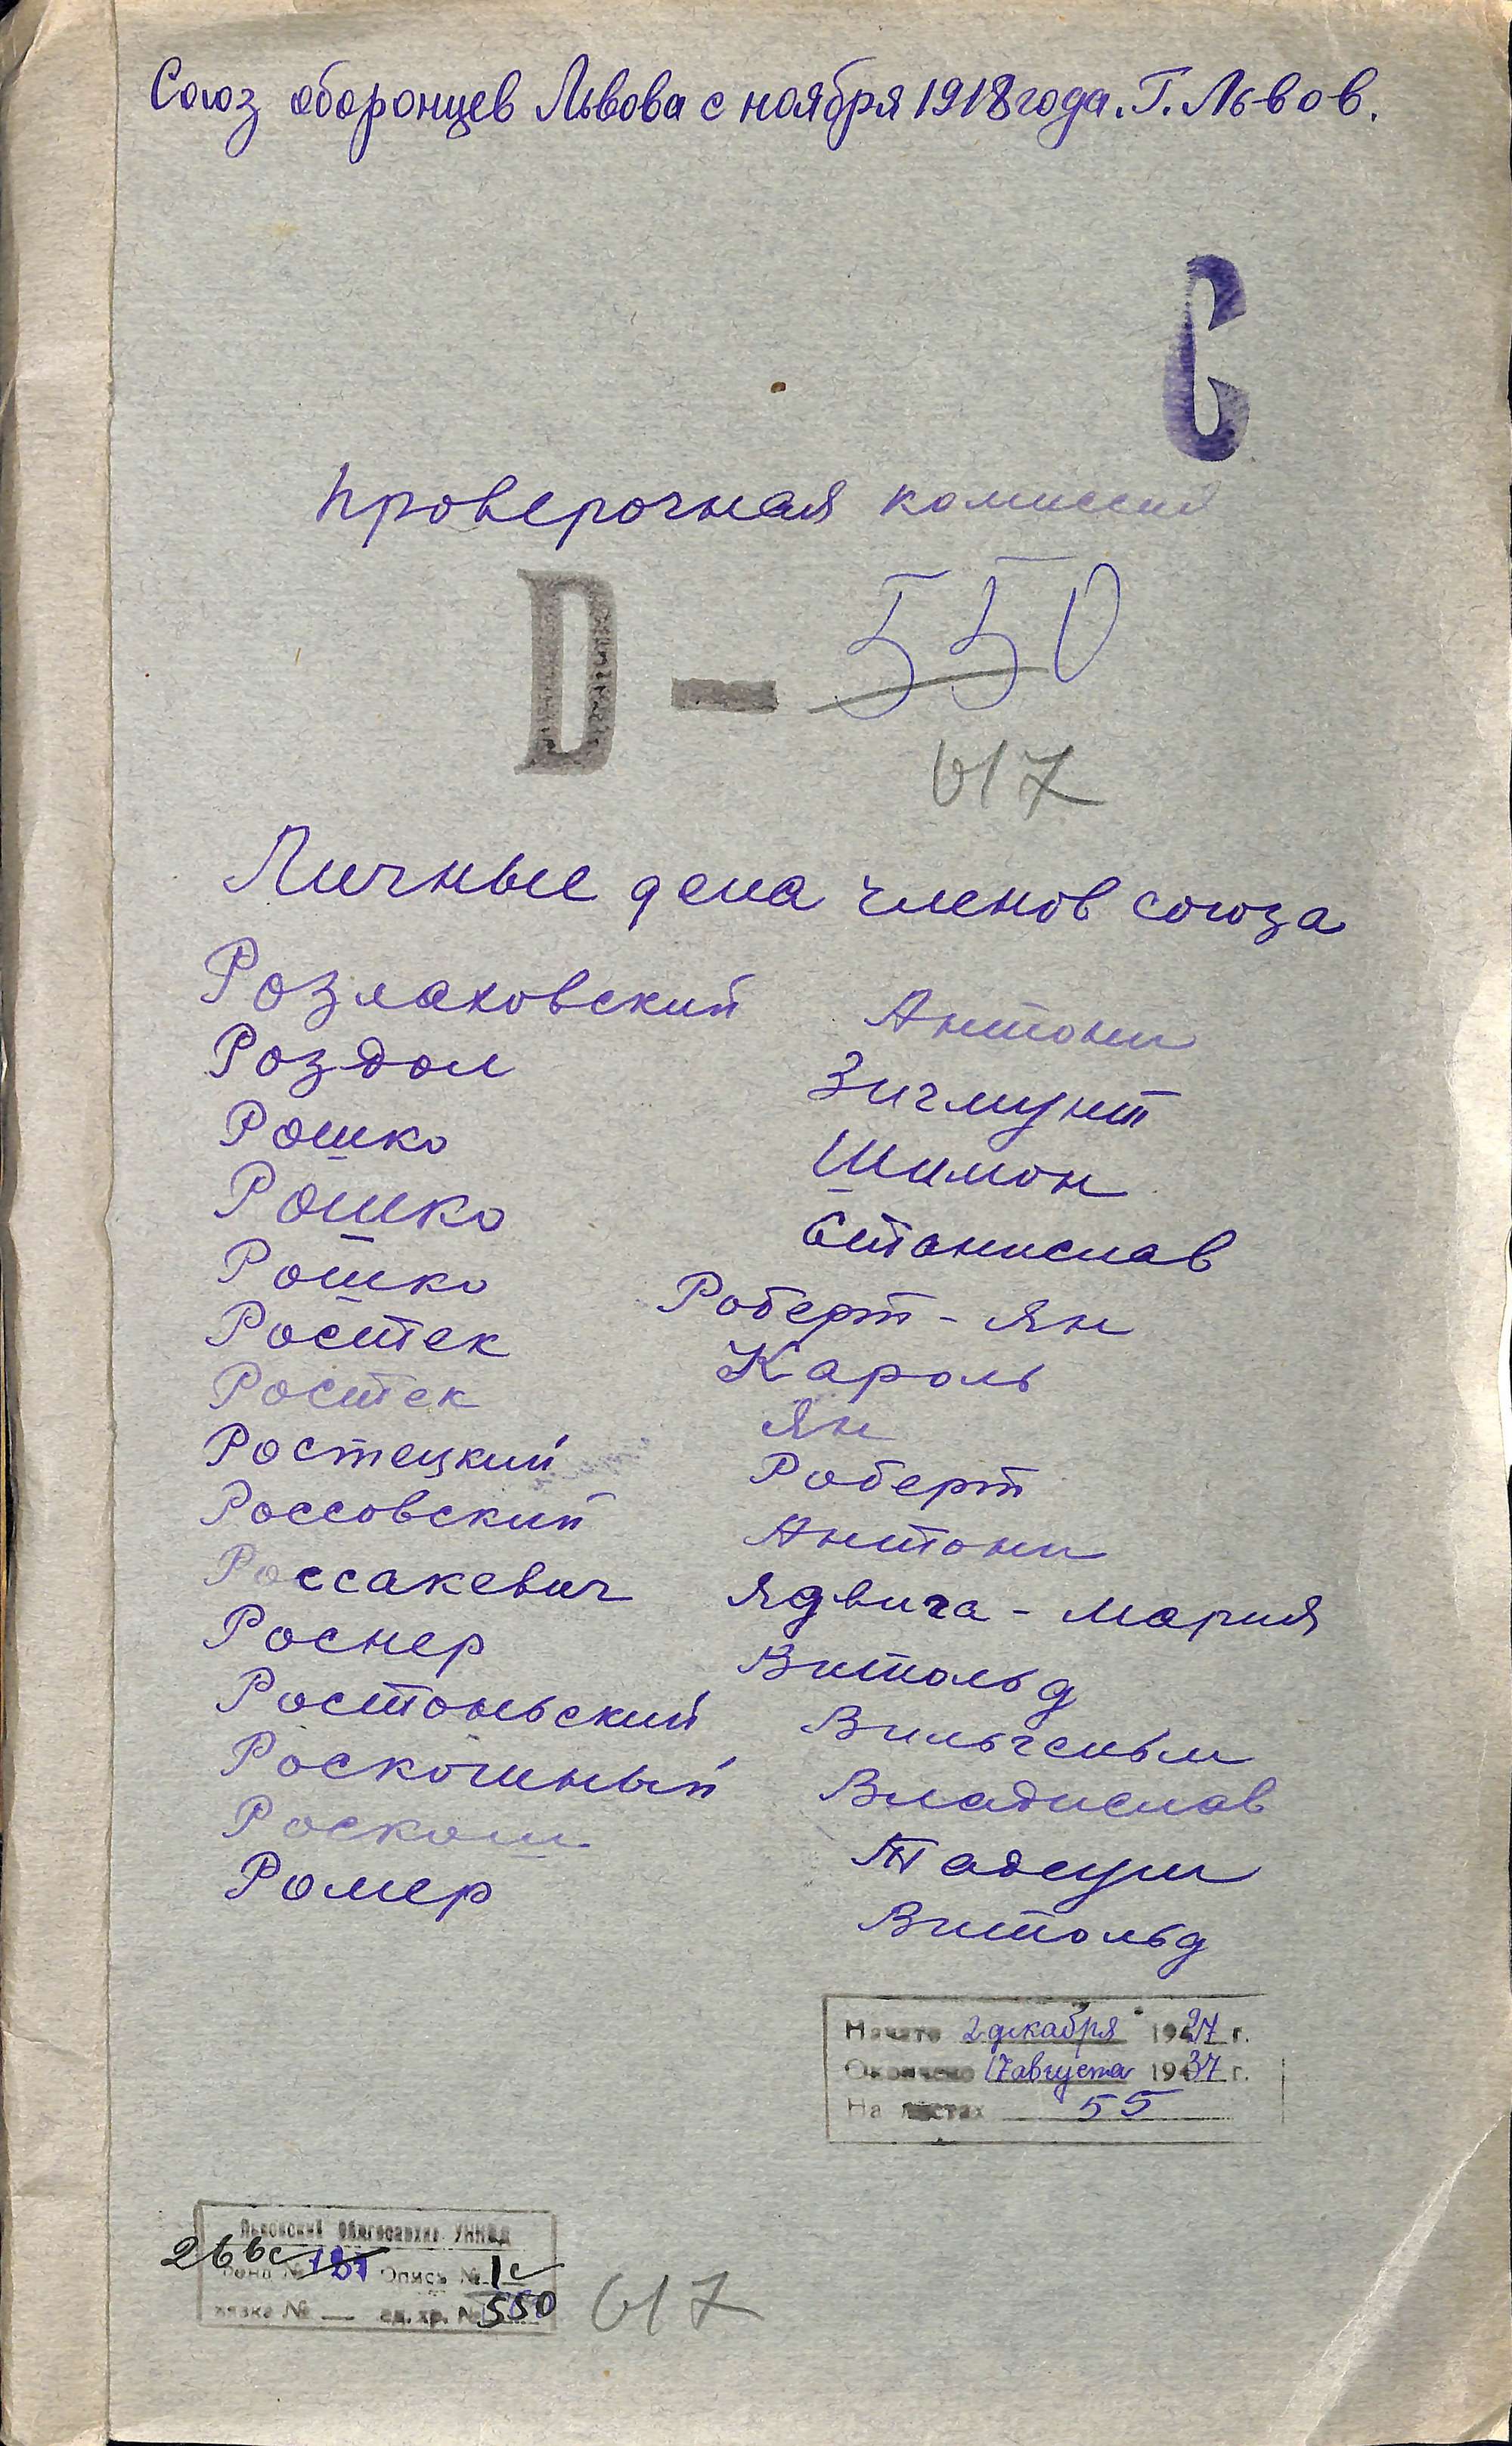 Союз оборонцев Львова с ноября 1918 года. Г. Львов.
С
проверочная комиссия
D — 550
617
Личные дела членов союза
Розлаховский Антони
Роздол Зигмунт
Рошко Шимон
Рошко Станислав
Рошко Роберт - Ян
Роштек Кароль
Роштек Ян
Ростецкий Роберт
Россовский Антони
Россакевич Ядвига - Мария
Роснер Витольд
Ростоньский Вильгельм
Роскошный Владислав
Роскош Тадеуш
Ромер Витольд
Начато 2 декабря 1927 г.
Окончено 17 августа 1937 г.
На листах 55
Львовский Облгосархив УНКВД
266с Фонд № 131 Опись № 1с
связка № — ед. хр. № 550
617